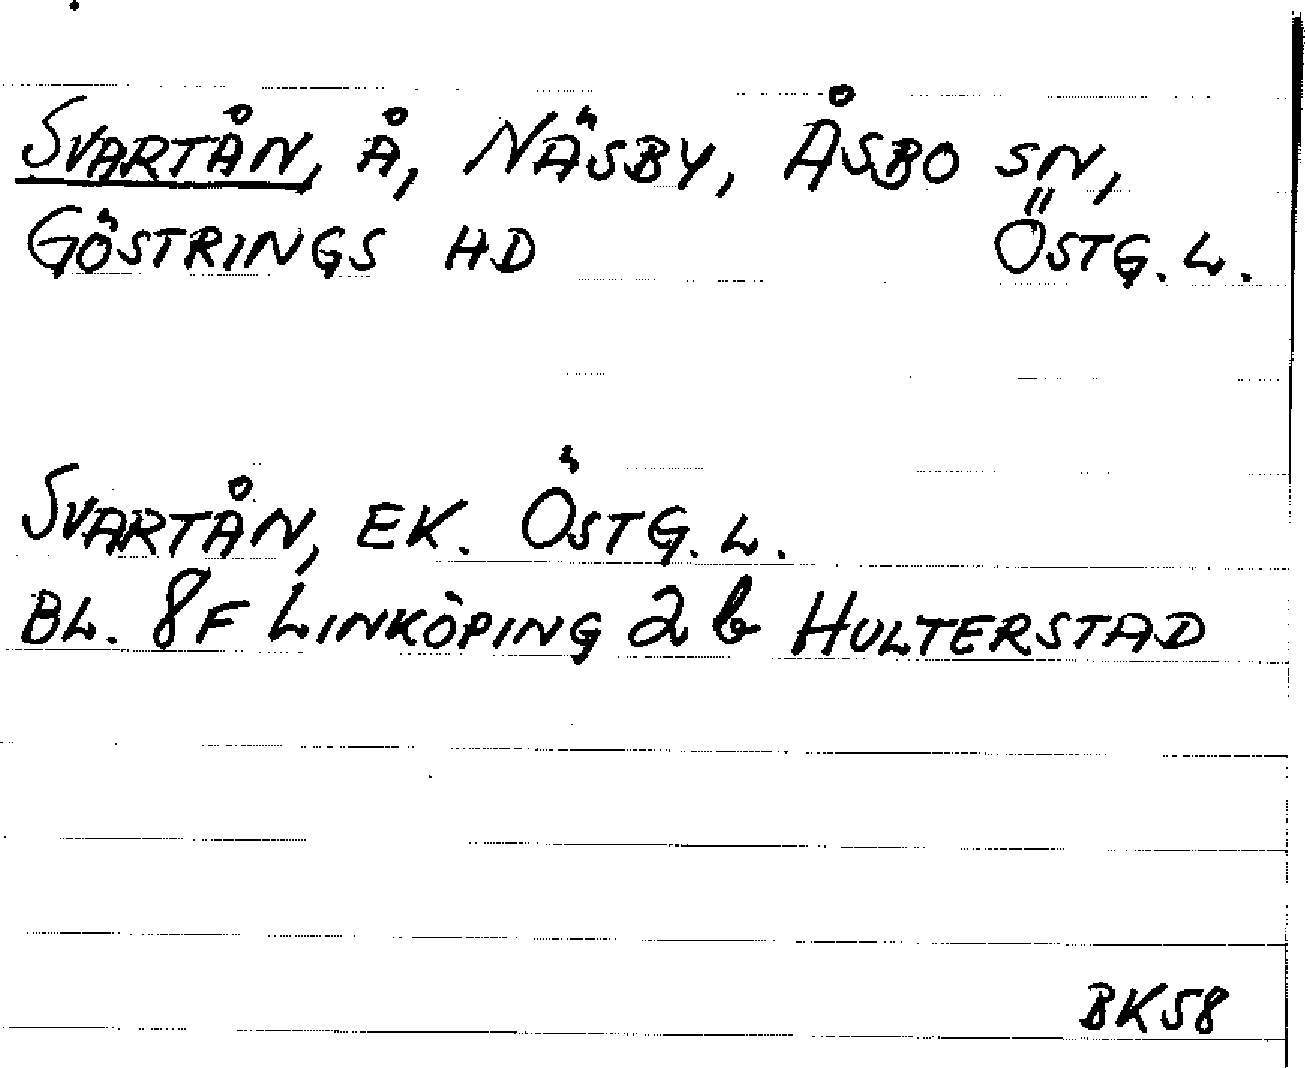 SVARTÅN, Å, NÄSBY, ÅSBO SN,
GÖSTRINGS HD ÖSTG. L.
SVARTÅN, EK. ÖSTG. L.
BL. 8F LINKÖPING 2b HULTERSTAD
BK58